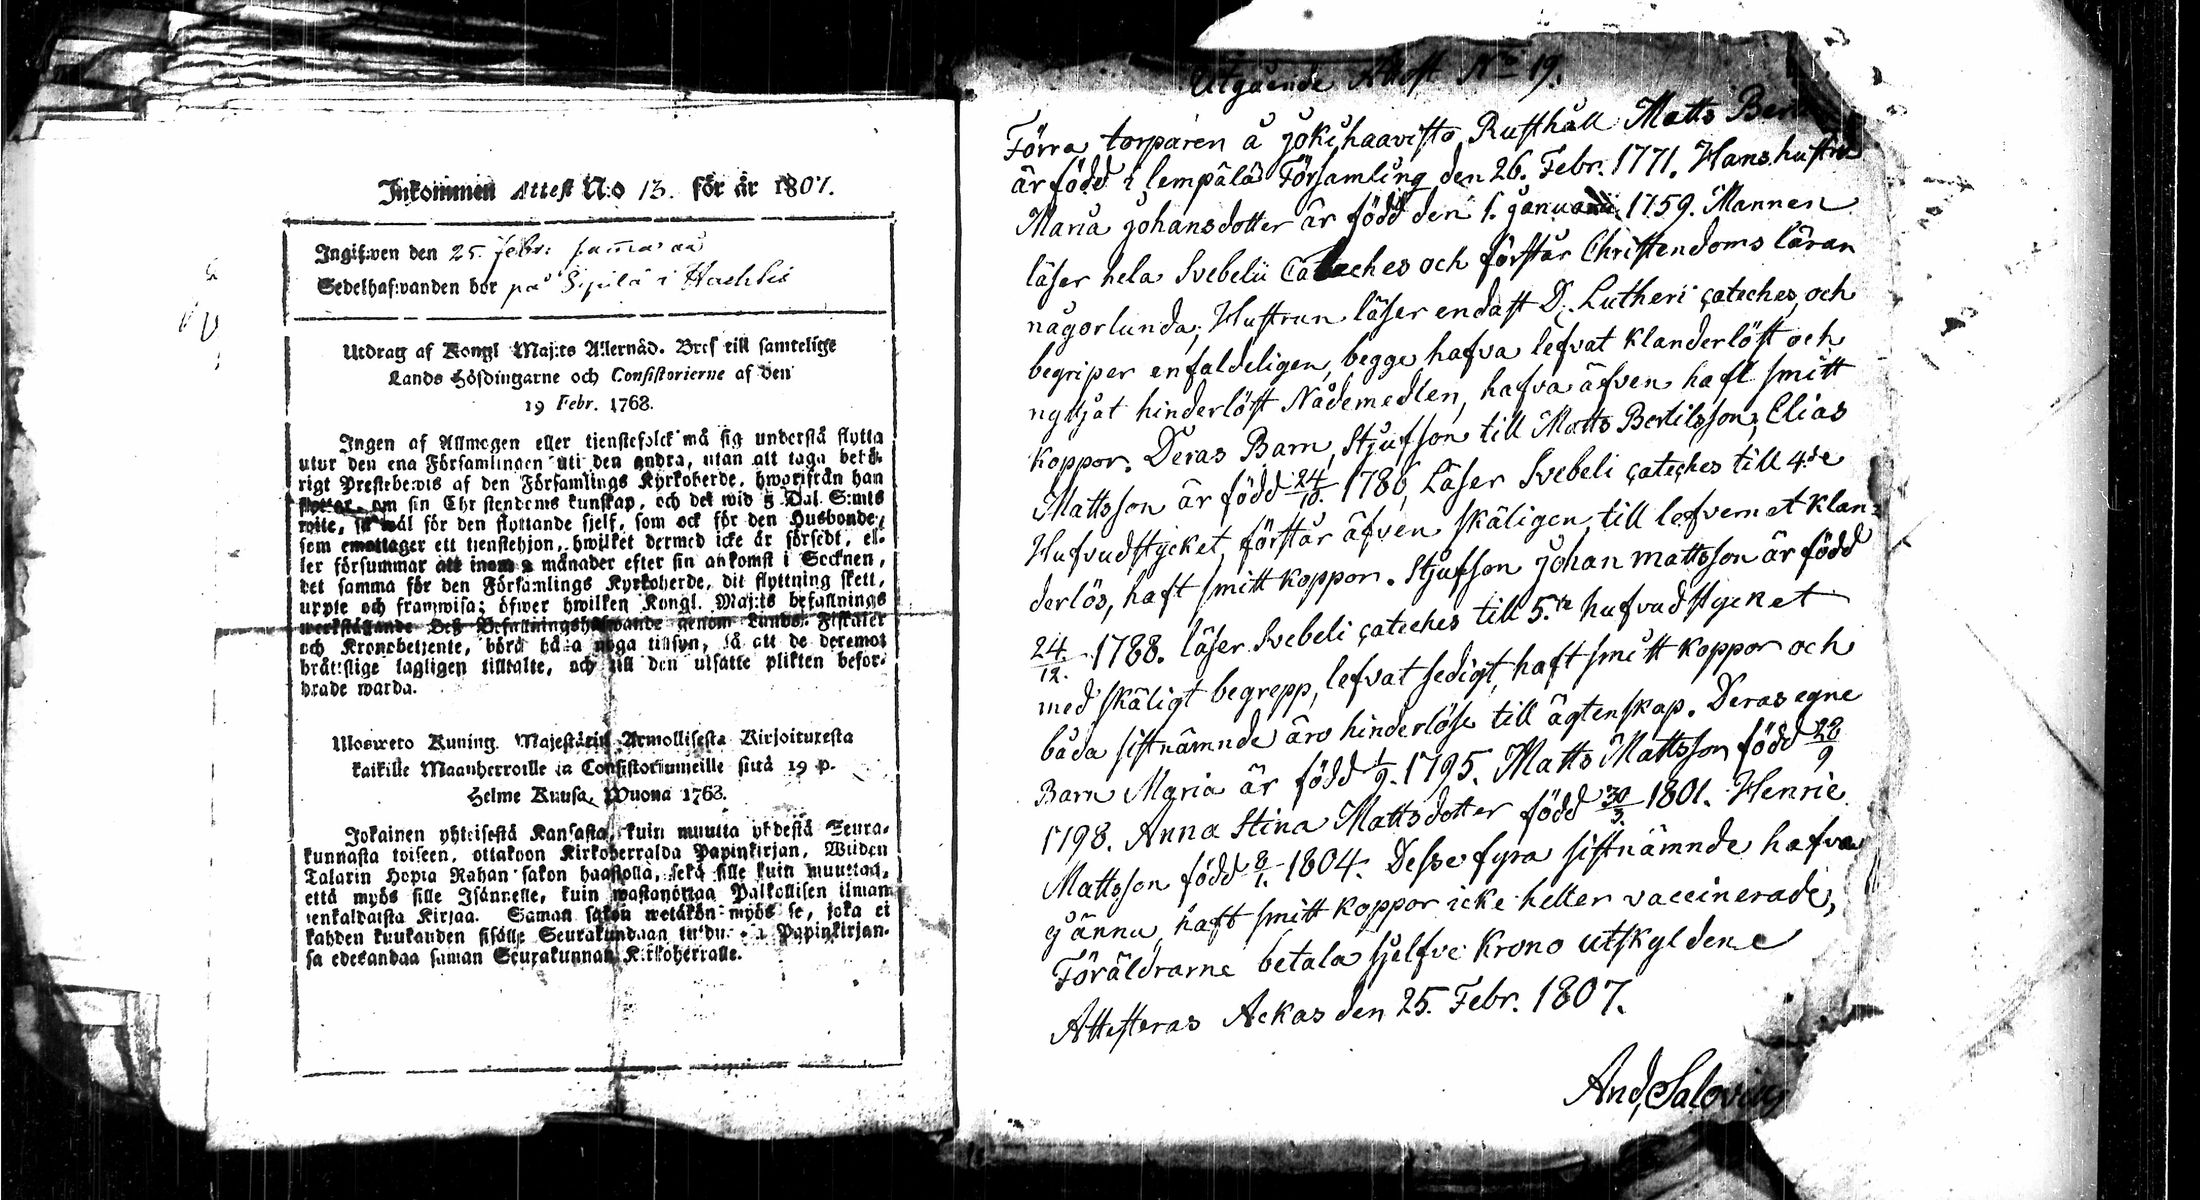 Inkommen Attest N:o 13. för år 1807.
Ingifwen den 25. febr: samma åå
Sedelhafwanden bor på Sipilä i
Utdrag af Kongl Maj:ts Allernåd. Bref till samtelige
Lands Höfdingarne och Consistorierne af den
19 Febr. 1768.
Ingen af Allmogen eller tienstefolck må sig understå flytta
utur den ena Församlingen uti den andra, utan att taga behö-
rigt Prestebewis af den Församlings Kyrkoherde, hwarifrån han
flyttar, om sin Christendoms kunskap, och det wid 5 Dal. S:mts
wite, så wäl för den flyttande sjelf, som ock för den Husbonde,
som emottager ett tienstehjon, hwilket dermed icke är försedt, el-
ler försummar att inom 2 månader efter sin ankomst i Socknen,
det samma för den Församlings Kyrkoherde, dit flyttning skett,
uppte och framwisa; öfwer hwilken Kongl. Maj:ts befallnings
werkställande Deß Befallningshafwande genom Lands-Fiskaler
och Kronobetjente, böra hafwa noga tillsyn, så att de deremot
bråttslige lagligen tilltalte, och till den utsatte plikten befor-
drade warda.
Ulosweto Kuning. Majestätin Armollisesta Kirjoituxesta
kaikille Maanherroille ja Consistoriumeille siitä 19 p.
Helme Kuusa, Wuona 1768.
Jokainen yhteisestä Kansasta, kuin muutta yhdestä Seura-
kunnasta toiseen, ottakoon Kirkoherralda Papinkirjan, Wiiden
Talarin Hopia Rahan sakon haastolla, sekä sille kuin muuttaa,
että myös sille Isännelle, kuin wastanottaa Palkollisen ilman
senkaldaista Kirjaa. Saman sakon wetäkön myös se, joka ei
kahden kuukauden sisälle Seurakundaan Papinkirjan-
sa edesandaa saman Seurakunnan Kirkoherralle.
Utgående Attest No 19.
Förra torparen å Jokihaavisto Rusthåll Matts
är född i Lempälä Församling den 26. Febr. 1771. Hans hustru
Maria Johansdotter är född den 1. Januarii 1759. Mannen
läser hela Svebelii Cateches och förstår Christendoms läran
någorlunda, Hustrun läser endast D. Lutheri Cateches, och
begriper enfaldeligen, begge hafva lefvat klanderlöst och
nyttjat hinderlöst Nådemedlen, hafva äfven haft smitt
koppor. Deras Barn, Stjufson till Matts Bertilsson, Elias
Mattsson är född 24/10. 1786, Läser Svebeli Cateches till 4:de
Hufvudstycket, förstår äfven skäligen, till lefvernet klan-
derlös, haft smitt koppor. Stjufson Johan Mattsson är född
24/12. 1788. läser Svebeli Cateches till 5.te hufvudstycket
med skäligt begrepp, lefvat sedigt, haft smitt koppor och
båda sistnämnde äro hinderlöse till ägtenskap. Deras egne
Barn Maria är född 1/9. 1795. Matts Mattsson född 28/9
1798. Anna Stina Mattsdotter född 30/3. 1801. Henric
Mattsson född 8/1. 1804. Desse fyra sistnämnde hafva
ej ännu haft smitt koppor icke heller vaccinerade,
Föräldrarne betala sjelfve Krono utskyldene
Attesteras Ackas den 25. Febr. 1807.
And, Salovius